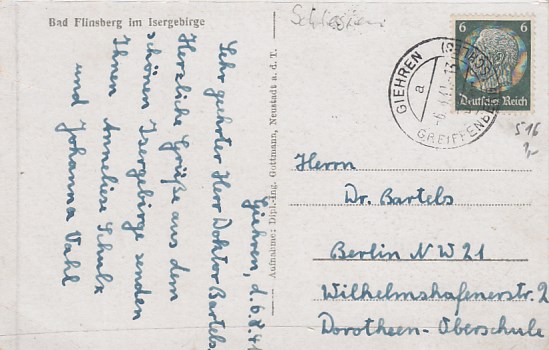 Bad Flinsberg im Isergebirge
Schlesien
Giehren, d. 6.8.41
Sehr geehrter Herr Doktor Bartels,
Herzliche Grüße aus dem
schönen Isergebirge senden
Ihnen Annelise Schulz
und Johanna Vahl
Aufnahme: Dipl.-Ing. Gottmann, Neustadt a. d. T.
6 6
Deutsches Reich
GIEHREN
a
GREIFFENBERG
516
Herrn
Dr. Bartels
Berlin NW 21
Wilhelmshafenerstr. 2
Dorotheen-Oberschule